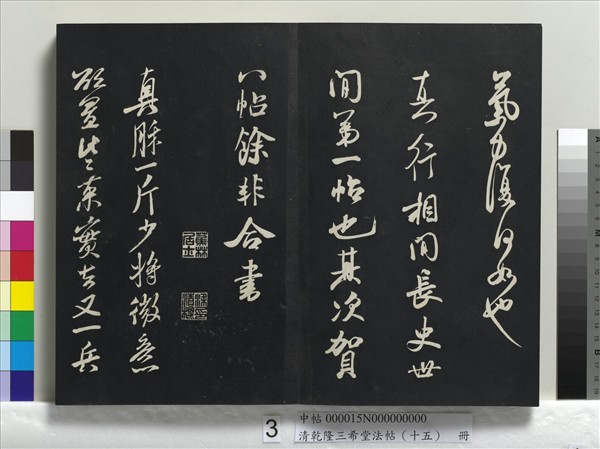 氣力復何如也
真行相間長史世
間第一帖也其次賀
八帖餘非合書
真酥一斤少將微意
欲置些果實去又一兵
3
中帖 000015N000000000
清乾隆三希堂法帖（十五） 冊